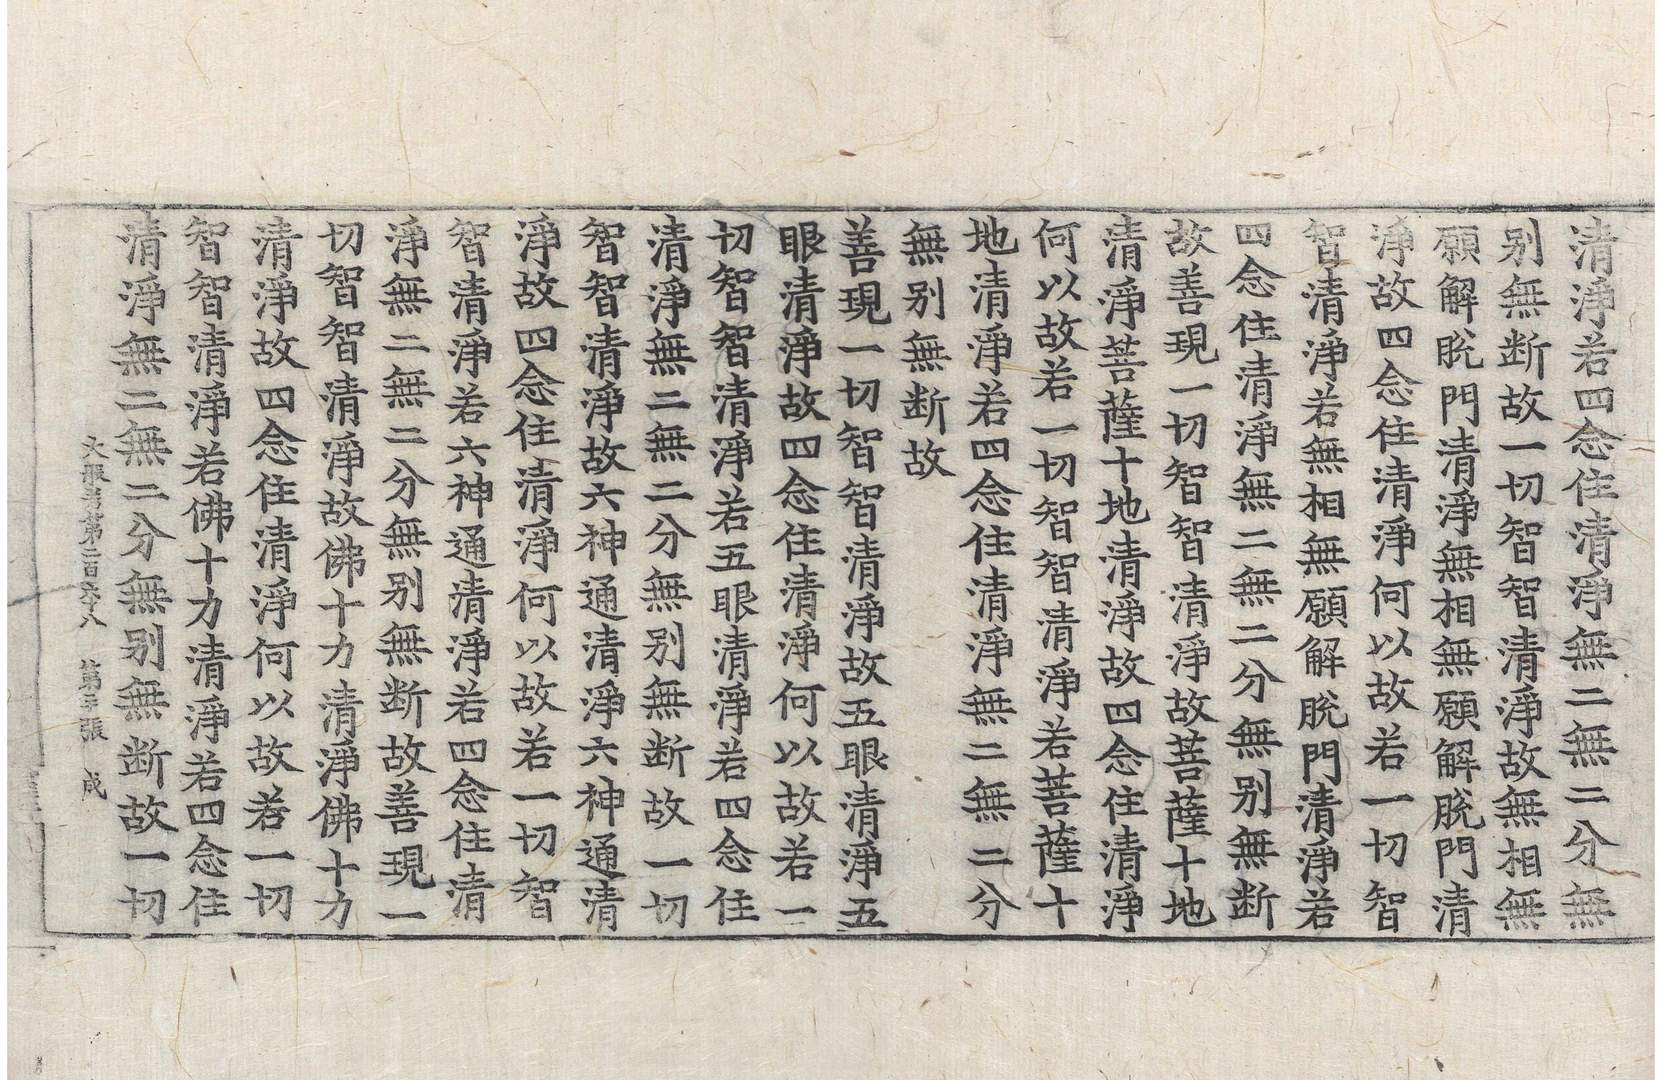 清淨若四念住清淨無二無二分無
别無断故一切智智清淨故無相無
願解脫門清淨無相無願解脫門清
淨故四念住清淨何以故若一切智
智清淨若無相無願解脫門清淨若
四念住清淨無二無二分無别無断
故善現一切智智清淨故菩薩十地
清淨菩薩十地清淨故四念住清淨
何以故若一切智智清淨若菩薩十
地清淨若四念住清淨無二無二分
無别無断故
善現一切智智清淨故五眼清淨五
眼清淨故四念住清淨何以故若一
切智智清淨若五眼清淨若四念住
清淨無二無二分無别無断故一切
智智清淨故六神通清淨六神通清
淨故四念住清淨何以故若一切智
智清淨若六神通清淨若四念住清
淨無二無二分無别無断故善現一
切智智清淨故佛十力清淨佛十力
清淨故四念住清淨何以故若一切
智智清淨若佛十力清淨若四念住
清淨無二無二分無别無断故一切
大般若第二百六十八 第 張 成